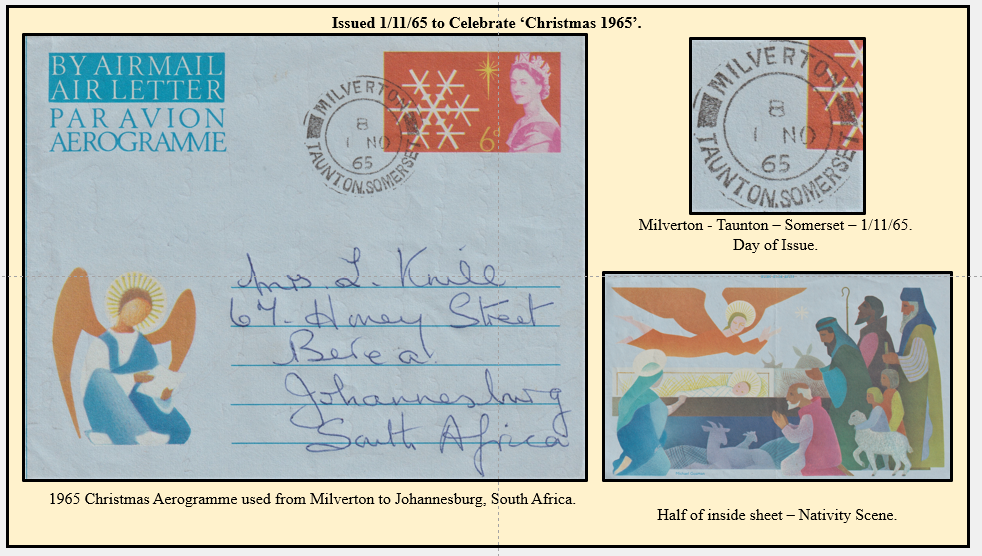 Issued 1/11/65 to Celebrate ‘Christmas 1965’.
BY AIRMAIL
AIR LETTER
PAR AVION
AEROGRAMME
MILVERTON
8
1 NO
65
TAUNTON.SOMERSET
6ᴰ
Mrs L. Knill
67. Honey Street
Berea
Johannesburg
South Africa
1965 Christmas Aerogramme used from Milverton to Johannesburg, South Africa.
MILVERTON
8
1 NO
65
TAUNTON.SOMERSET
Milverton - Taunton – Somerset – 1/11/65.
Day of Issue.
Half of inside sheet – Nativity Scene.